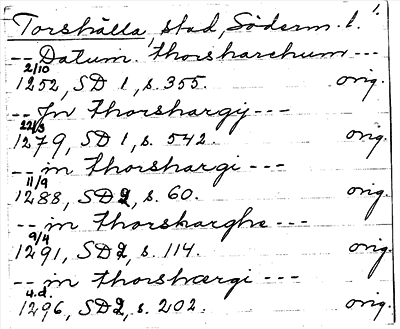 Torshälla, stad, Söderm. l. 1.
-- Datum. Thorsharchum ---
2/10
1252, SD 1, s. 355. orig.
-- Jn Thorshargij ---
22/3
1279, SD 1, s. 542. orig.
-- in Thorshargi ---
11/9
1288, SD 2, s. 60. orig.
-- in Thorskarghe ---
9/4
1291, SD 2, s. 114. orig.
-- in Thorshærgi ---
u.d.
1296, SD 2, s. 202. orig.